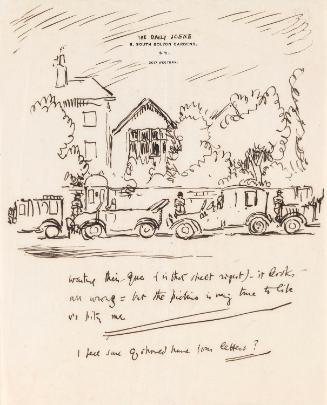 THE DAILY SCENE
5, SOUTH BOLTON GARDENS,
S.W.
waiting their que (is that spelt right) - it looks
all wrong = but the picture is very true to life
me
I feel sure I should have your letters?